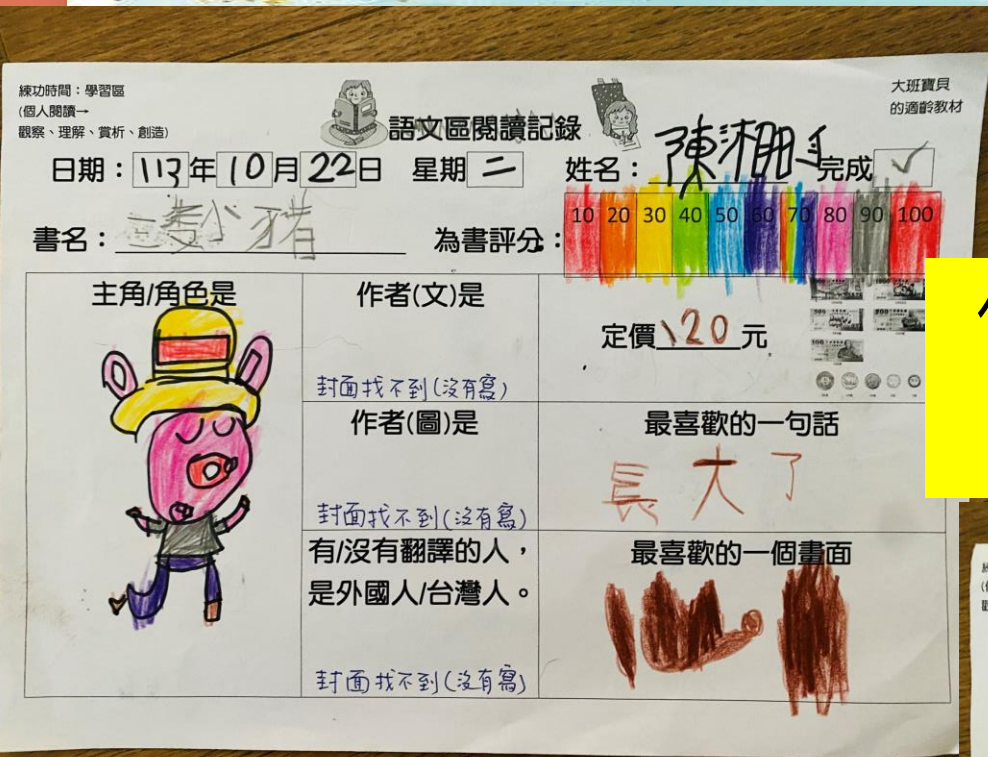 練功時間：學習區
(個人閱讀→
觀察、理解、賞析、創造)
大班寶貝
的適齡教材
語文區閱讀記錄
日期：113年10月22日 星期二 姓名：陳 完成✓
書名：三隻小豬 為書評分：10 20 30 40 50 60 70 80 90 100
主角/角色是
作者(文)是
封面找不到(沒有寫)
定價120元
作者(圖)是
封面找不到(沒有寫)
最喜歡的一句話
長大了
有/沒有翻譯的人，
是外國人/台灣人。
封面找不到(沒有寫)
最喜歡的一個畫面